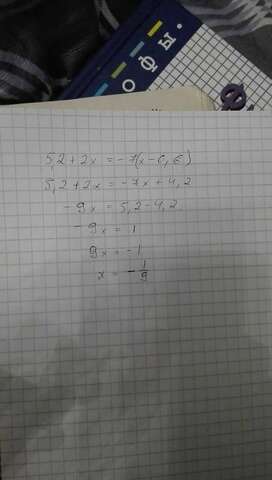 офы.
Ф
5,2 + 2x = -7(x - 0,6)
5,2 + 2x = -7x + 4,2
-9x = 5,2 - 4,2
-9x = 1
9x = -1
x = -1/9